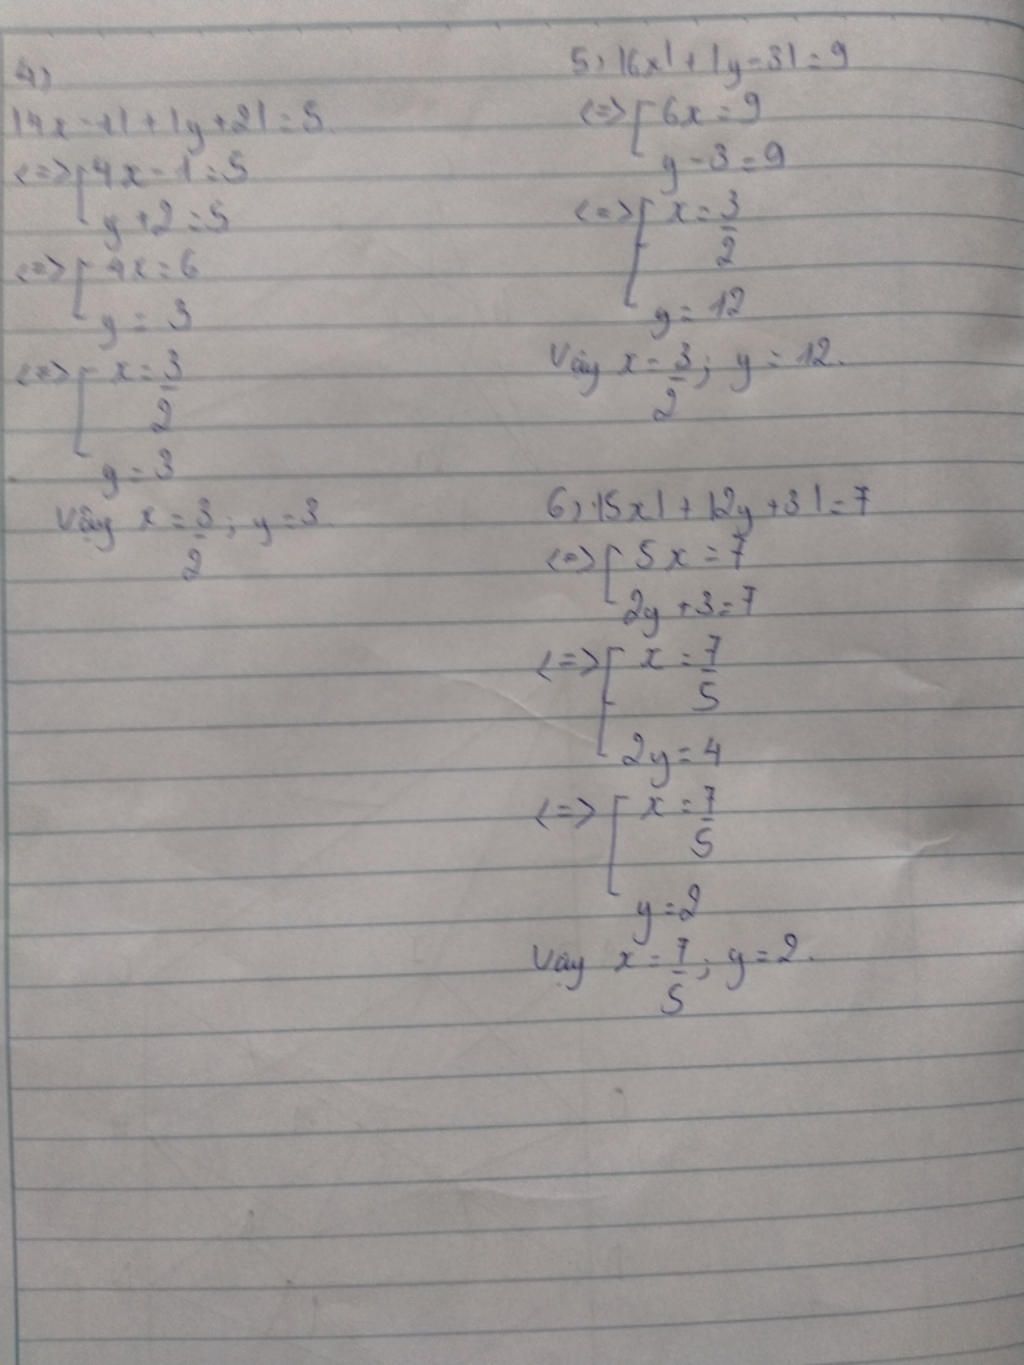 4)
|4x-1|+|y+2|=5.
<=>[4x-1=5
y+2=5
<=>[4x=6
y=3
<=>[x=3/2
y=3
Vậy x=3/2; y=3.
5) |6x|+|y-3|=9
<=>[6x=9
y-3=9
<=>[x=3/2
y=12
Vậy x=3/2; y=12.
6) |5x|+|2y+3|=7
<=>[5x=7
2y+3=7
<=>[x=7/5
2y=4
<=>[x=7/5
y=2
Vậy x=7/5; y=2.